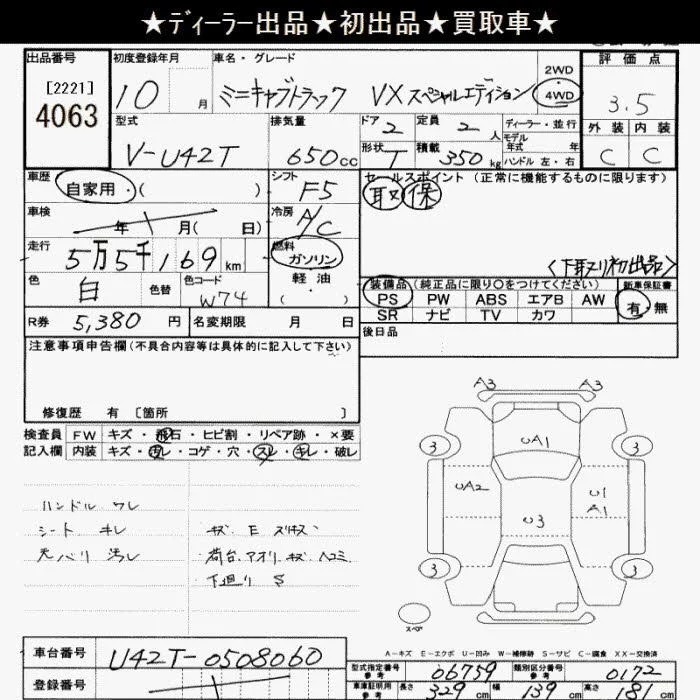 ★ディーラー出品★初出品★買取車★
出品番号 初度登録年月 車名・グレード 評価点
[2221]
4063
10 月 ミニキャブトラック VXスペシャルエディション 2WD 4WD 3.5
型式 排気量 ドア 2 定員 2 人 ディーラー・並行 外装 内装
モデル年式 年
V-U42T 650cc 形状 T 積載 350kg ハンドル 左・右 C C
車歴 自家用・( ) シフト F5 セールスポイント(正常に機能するものに限ります)
取 保
車検 年 月( 日) 冷房 A/C
走行 5万5千169km 燃料 ガソリン <下取リ初出品>
色 白 色替 色コード W74 軽油 ( ・ )
装備品(純正品に限り〇をつけてください) 新車保証書
PS PW ABS エアB AW 有・無
SR ナビ TV カワ
R券 5,380 円 名変期限 月 日 後日品
注意事項申告欄(不具合内容等は具体的に記入して下さい)
修復歴 有 〔箇所 〕
検査員 FW キズ・飛石・ヒビ割・リペア跡・×要
記入欄 内装 キズ・汚レ・コゲ・穴・スレ・キレ・破レ
ハンドル ワレ
シート キレ キズ E スリキズ
天バリ 汚レ 荷台、アオリ キズ ヘコミ
下廻リ S
A3 A3
3 UA1 3
UA2 U1
A1
U3
3 3
スペア
A-キズ E-エクボ U-凹み W-補修跡 S-サビ C-腐食 XX-交換済
車台番号 U42T-0508060
型式指定番号 参考 06759 類別区分番号 参考 0172
登録番号 車庫証明用 参考 長さ 329cm 幅 139cm 高さ 181cm